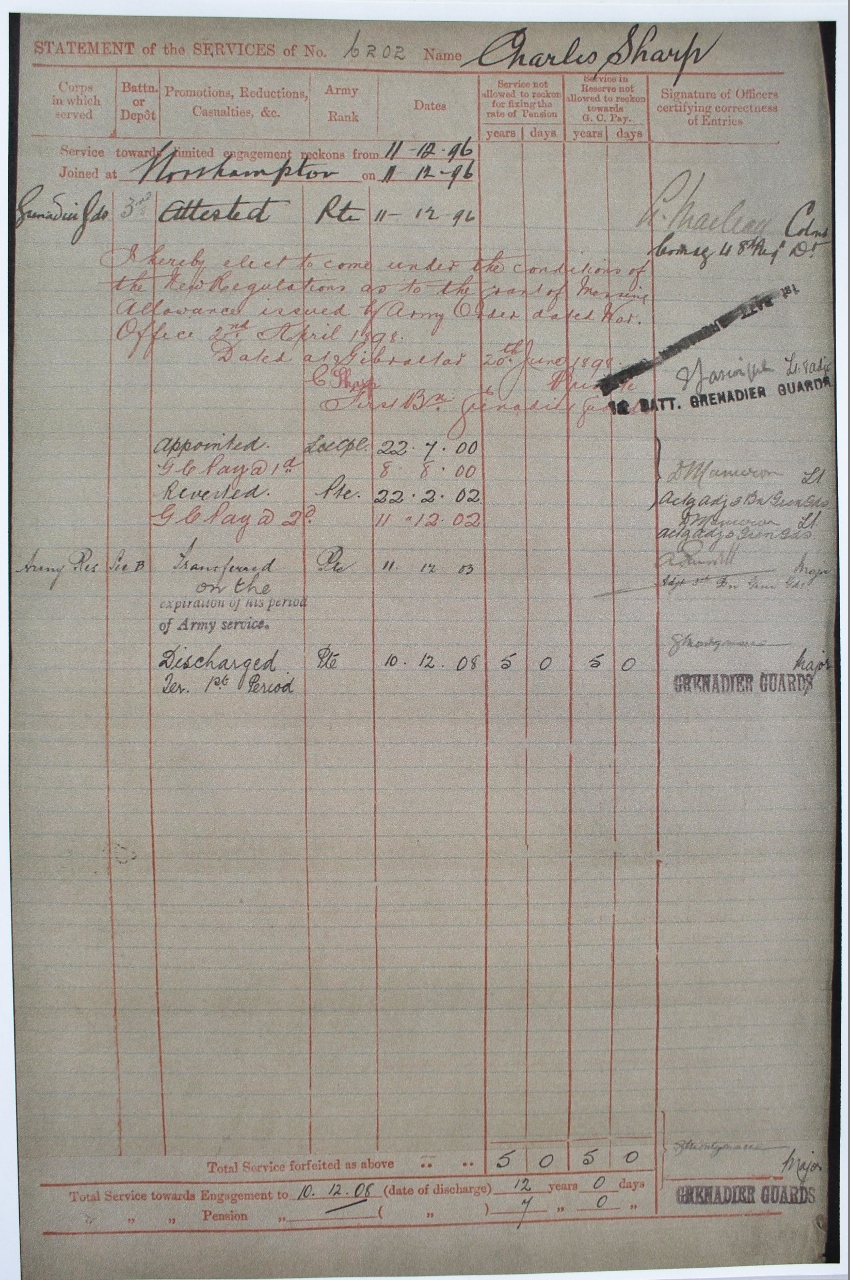 STATEMENT of the SERVICES of No. 6202 Name Charles Sharp
Corps in which served
Battn. or Depôt
Promotions, Reductions, Casualties, &c.
Army Rank
Dates
Service not allowed to reckon for fixing the rate of Pension
years days
Service in Reserve not allowed to reckon towards G. C. Pay.
years days
Signature of Officers certifying correctness of Entries
Service towards limited engagement reckons from 11-12-96
Joined at Northampton on 11-12-96
Grenadier Gds 3rd Attested Pte 11-12-96
Colonel
Comdg 48th Regl Dt
I hereby elect to come under the conditions of
the New Regulations as to the grant of Messing
Allowance issued by Army Order dated War
Office 2nd April 1898.
Dated at Gibraltar 20th June 1898.
C Sharp Private
First Bn Grenadier Guards
Lt & adjt
1st BATT. GRENADIER GUARDS
Appointed. Lce Cpl. 22.7.00
G C Pay @ 1d 8.8.00
Lt
Reverted. Pte. 22.2.02
Actg Adj 3 Bn Gren Gds
G C Pay @ 2d. 11.12.02
Lt
actg adj 3 Gren Gds
Army Res Sec B Transferred Pte 11 12 03
Major
on the
expiration of his period
of Army service.
Discharged Pte 10.12.08 5 0 5 0
Major
Ter. 1st Period
GRENADIER GUARDS
Total Service forfeited as above .. .. 5 0 5 0
Major
Total Service towards Engagement to 10.12.08 (date of discharge) 12 years 0 days
GRENADIER GUARDS
" " Pension " ( " ) 7 " 0 "